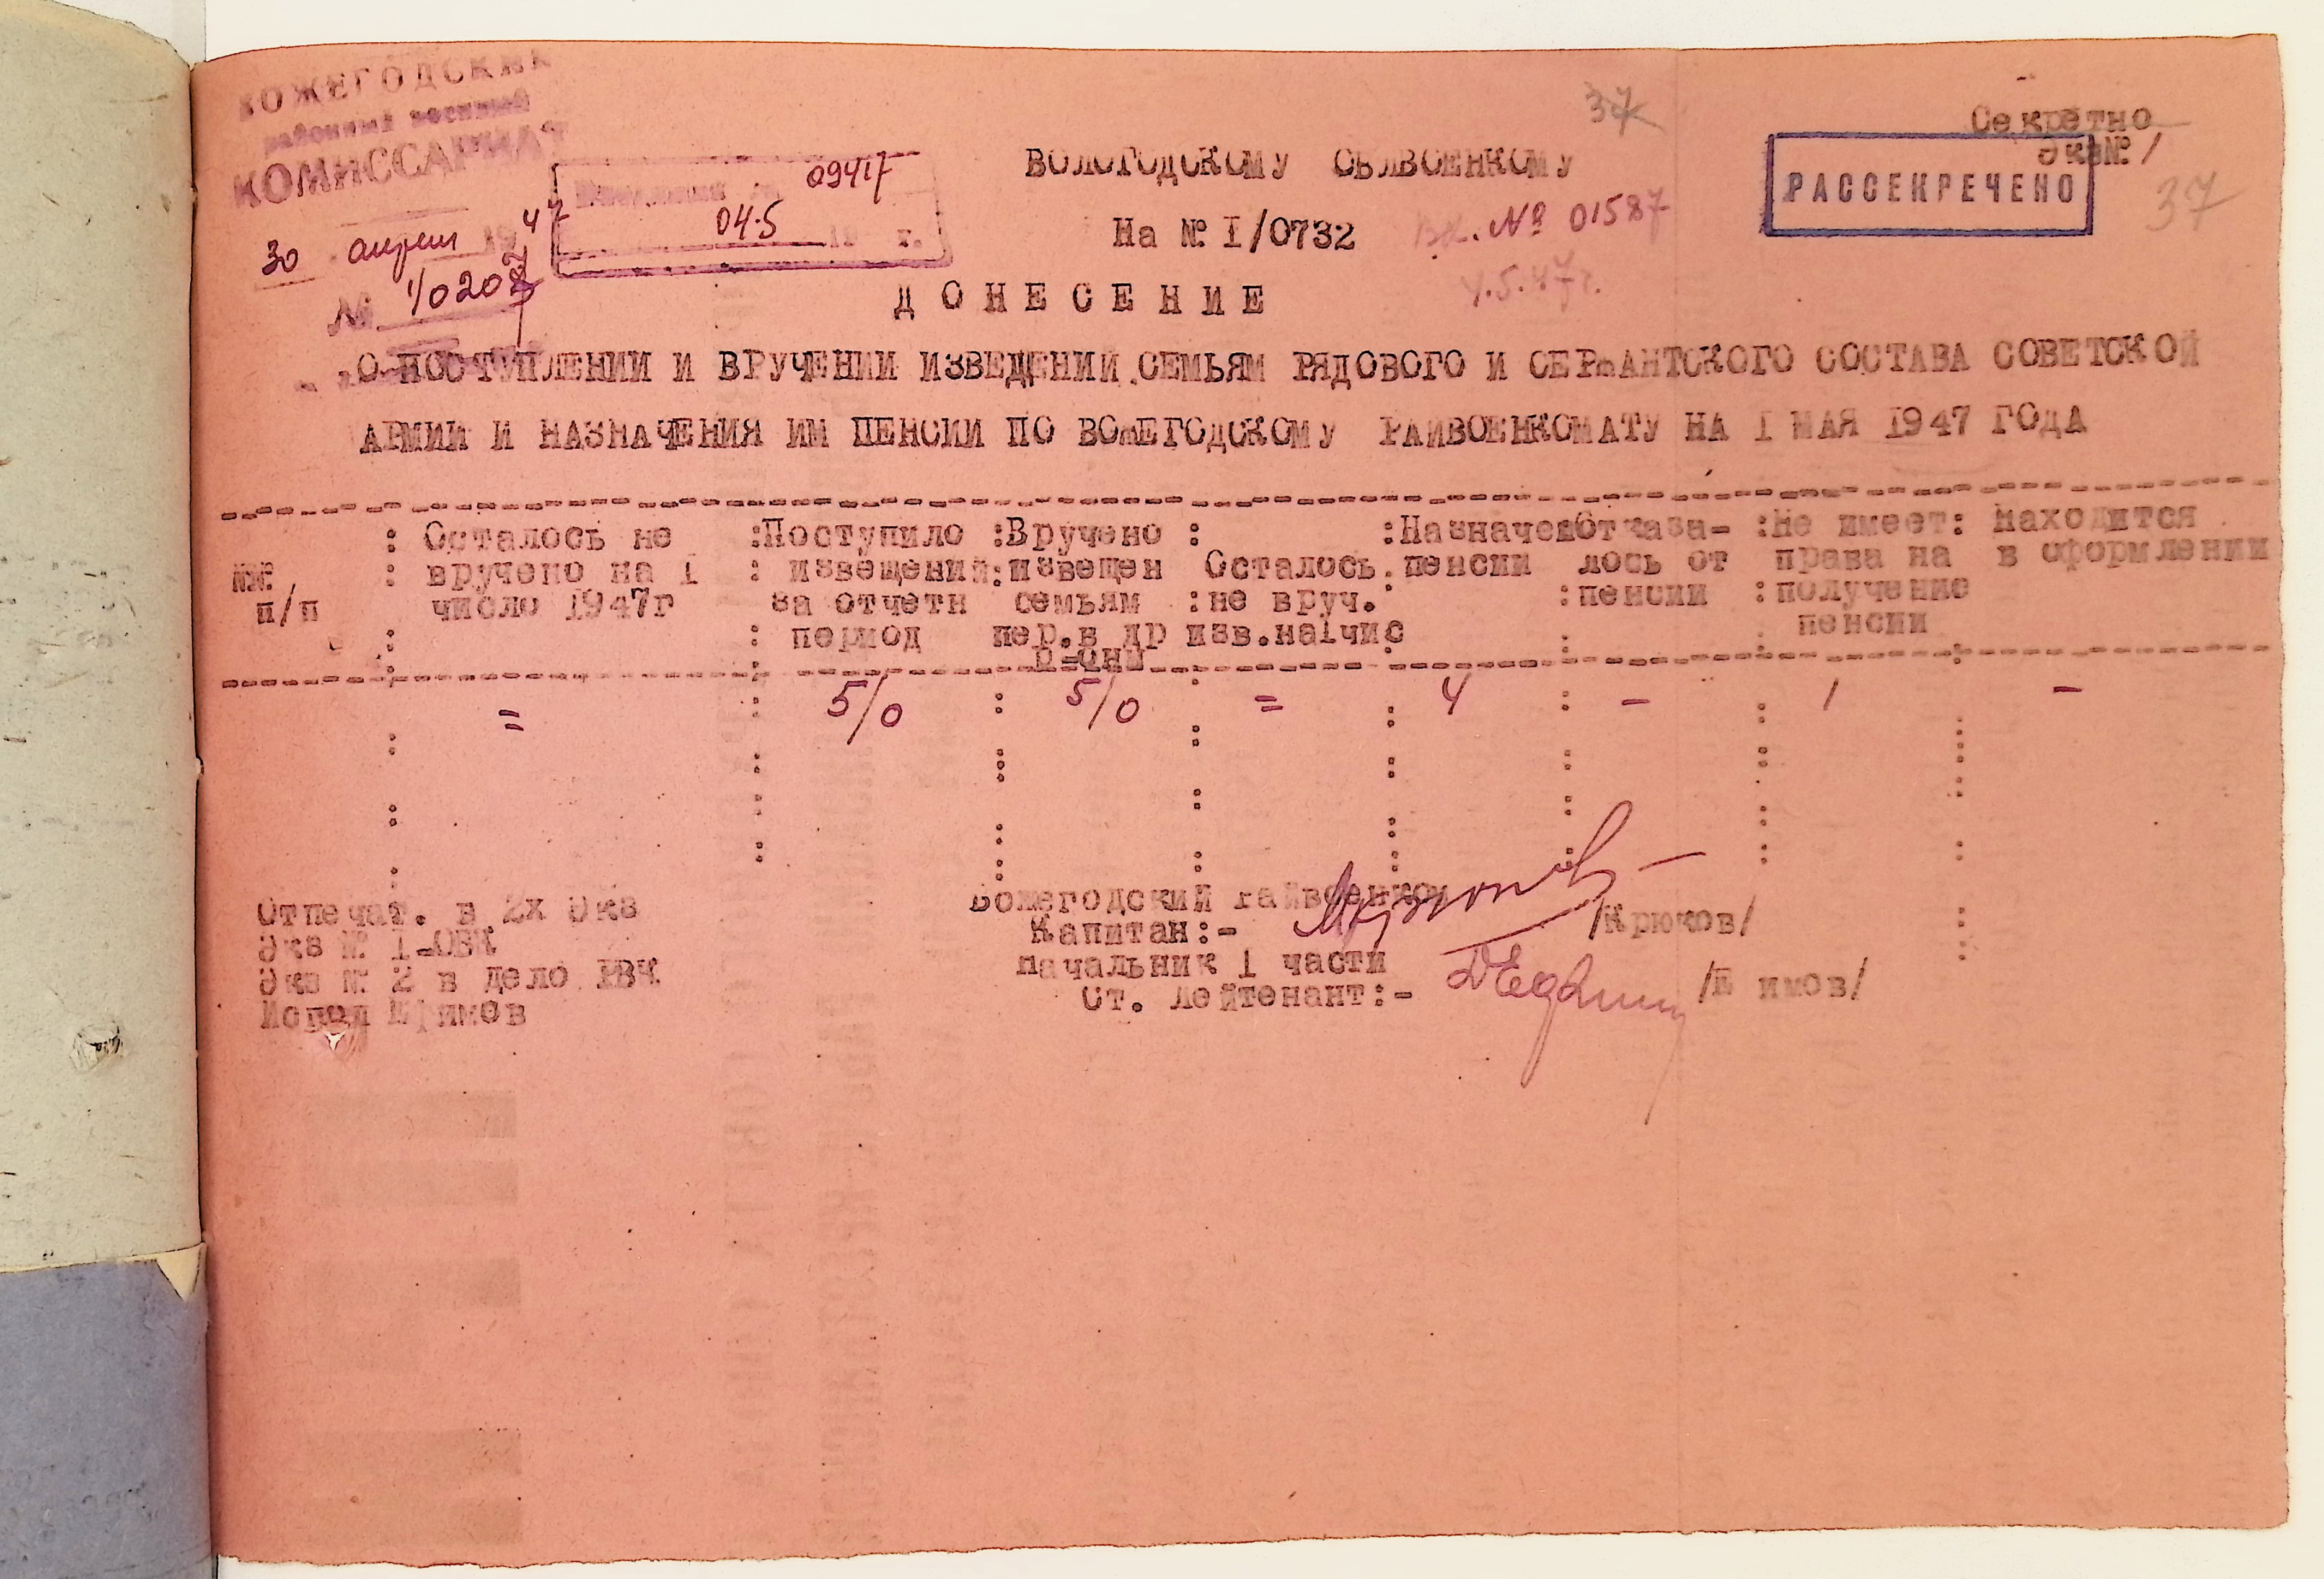 ВОЖЕГОДСКИЙ
районный военный
КОМИССАРИАТ
30 апреля 1947
№ 1/0208
09417
04.5 19 г.
37
Секретно
Экз№ 1
РАССЕКРЕЧЕНО
37
ВОЛОГОДСКОМУ ОБЛВОЕНКОМУ
На № I/0732
Вх. № 01587
4.5.47г.
ДОНЕСЕНИЕ
О ПОСТУПЛЕНИИ И ВРУЧЕНИИ ИЗВЕЩЕНИЙ СЕМЬЯМ РЯДОВОГО И СЕРжАНТСКОГО СОСТАВА СОВЕТСКОЙ
АРМИИ И НАЗНАЧЕНИЯ ИМ ПЕНСИИ ПО ВОжЕГОДСКОМУ РАЙВОЕНКОМАТУ НА I МАЯ 1947 ГОДА
№№ п/п : Осталось не вручено на I число 1947г : Поступило извещений за отчетн период : Вручено извещен семьям пер.в др р-оны : Осталось не вруч. изв.на1чис : Назначено пенсии : Отказа-лось от пенсии : Не имеет права на получение пенсии : Находится в оформлении
= : 5/0 : 5/0 : = : 4 : – : 1 : –
Отпечат. в 2х Экз
Экз № I-ОВК
Экз № 2 в дело РВК
Испол Ефимов
Вожегодский райвоенком
Капитан:- /Крюков/
Начальник I части
Ст. Лейтенант:- /Е имов/